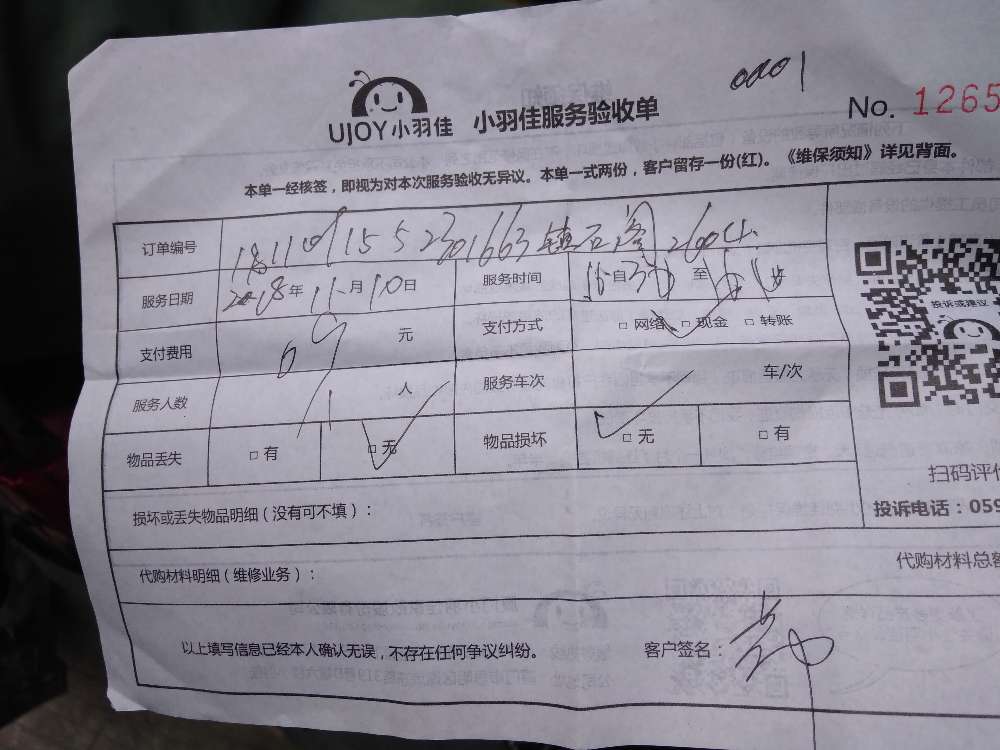 0001
UJOY小羽佳 小羽佳服务验收单
No. 1265
本单一经核签，即视为对本次服务验收无异议。本单一式两份，客户留存一份(红)。《维保须知》详见背面。
订单编号
服务日期 2018年11月10日 服务时间 自 至
支付费用 元 支付方式 □ 网络 □ 现金 □ 转账
投诉或建议
服务人数 1 人 服务车次 车/次
物品丢失 □ 有 □ 无 物品损坏 □ 无 □ 有
扫码评价
损坏或丢失物品明细（没有可不填）：
投诉电话：059
代购材料明细（维修业务）：
代购材料总
以上填写信息已经本人确认无误，不存在任何争议纠纷。 客户签名：